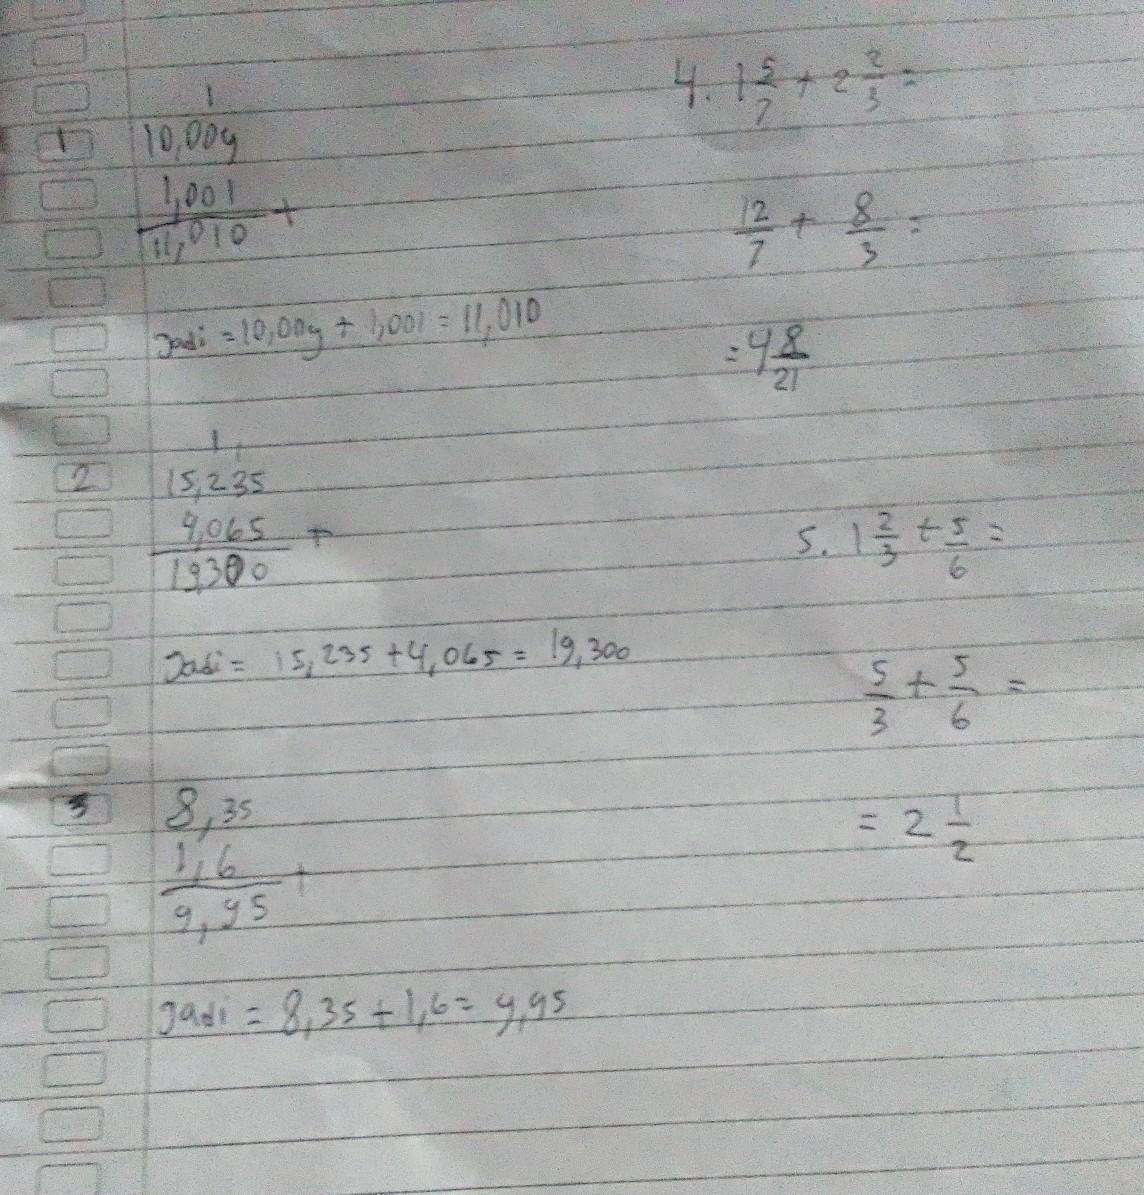 1
1 10,009
1,001 +
11,010
Jadi = 10,009 + 1,001 = 11,010
1
2 15,235
4,065 +
19,300
Jadi = 15,235 + 4,065 = 19,300
3 8,35
1,6 +
9,95
Jadi = 8,35 + 1,6 = 9,95
4. 1 5/7 + 2 2/3 =
12/7 + 8/3 =
= 4 8/21
5. 1 2/3 + 5/6 =
5/3 + 5/6 =
= 2 1/2